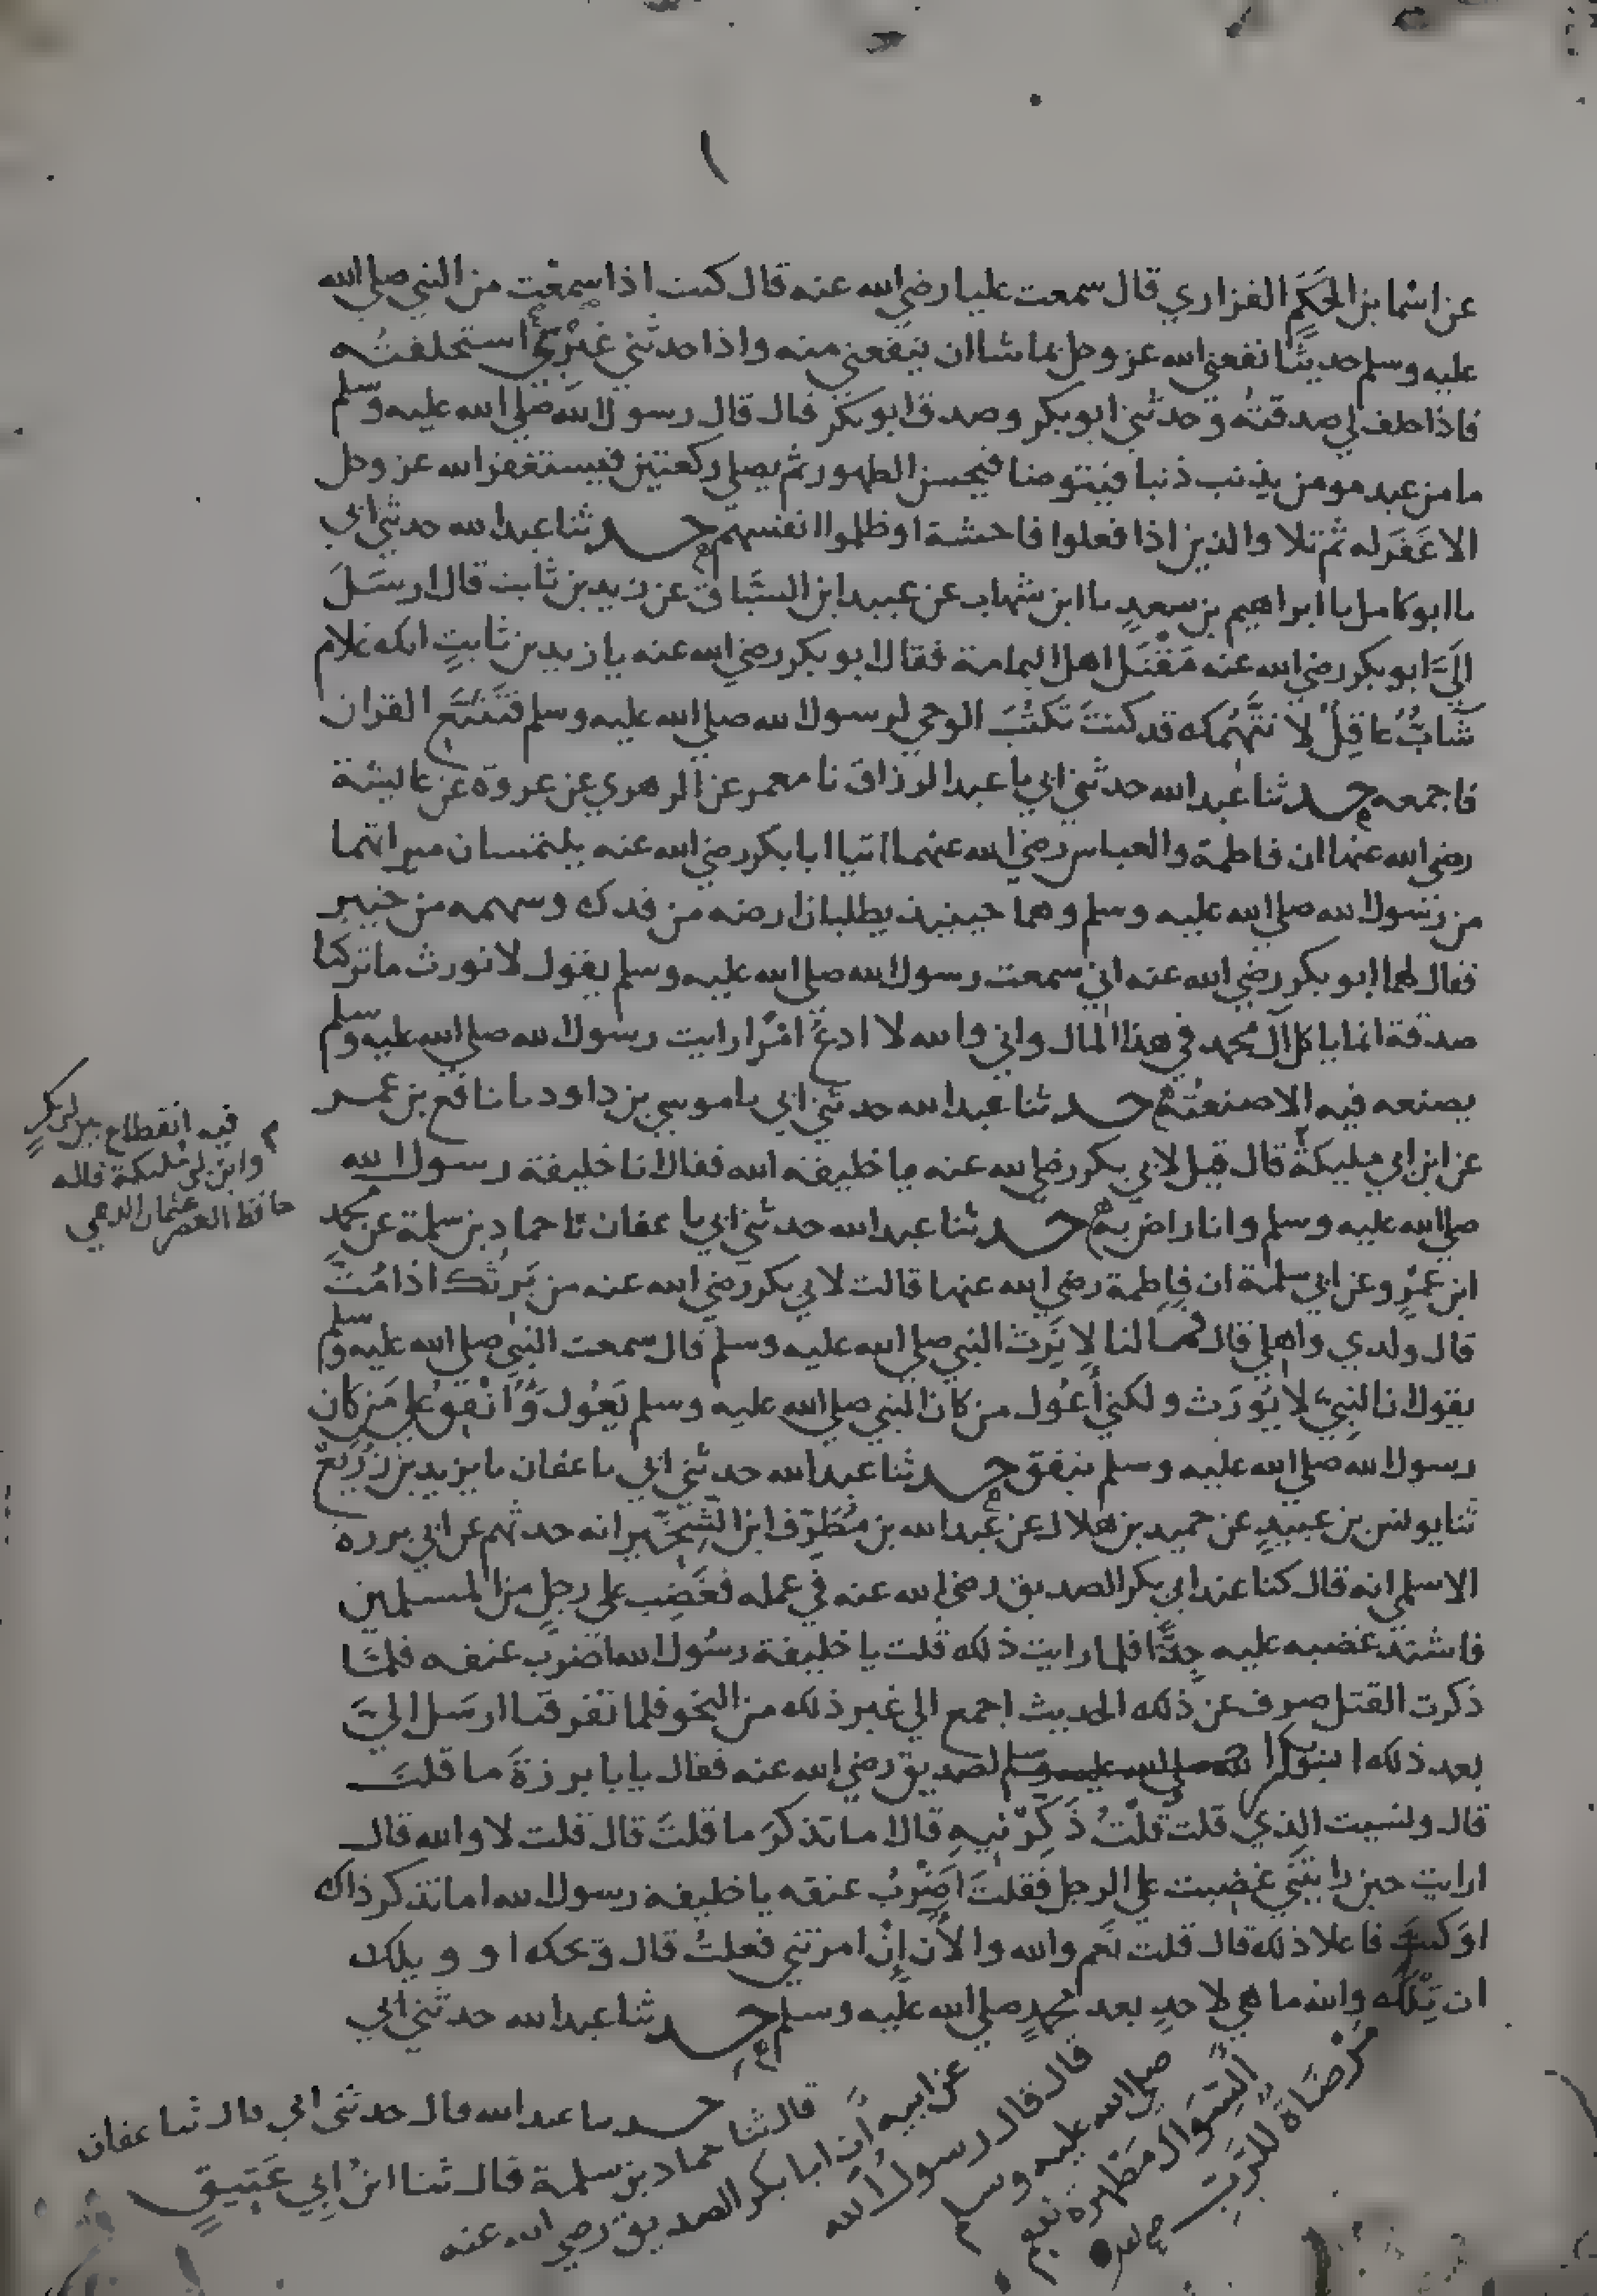 عن اسما بن الحَكَمِ الفزاري قال سمعت عليا رضي الله عنه قال كنت اذا سمعت من النبي صلى الله
عليه وسلم حديثا نفعني الله عز وجل بما شاان ينفعني منه واذا حدثني غيرى استحلفته
فاذا حلف لي صدقته وحدثني ابو بكر وصدق ابو بكر قال قال رسول الله صلى الله عليه وسلم
ما من عبد مومن يذنب ذنبا فيتوضا فيحسن الطهور ثم يصلي ركعتين فيستغفر الله عز وجل
الا غَفَر له ثم تلا والذين اذا فعلوا فاحشة او ظلموا انفسهم حدثنا عبد الله حدثني ابي
ىا ابو كامل ىا ابراهيم بن سعدٍ ىا ابن شهاب عن عبيد ابن السَّبَّاق عن زيد بن ثابت قال ارسَلَ
اليَّ ابو بكر رضي الله عنه مَقْتَل اهل اليمامة فقال ابو بكر رضي الله عنه يا زيد بن ثابتٍ انك غلام
شابٌّ عاقِلٌ لا نتَّهمُك قد كنتَ تكتُبُ الوحي لرسول الله صلى الله عليه وسلم فَتَتَبَّع القران
فاجمعه حدثنا عبد الله حدثني ابي ىا عبد الرزاق نا معمر عن الزهري عن عروة عن عايشة
رضي الله عنها ان فاطمة والعباس رضي الله عنهما اتيا ابا بكر رضي الله عنه يلتمسان ميراثهما
من رسول الله صلى الله عليه وسلم وهما حينيذ يطلبان ارضه من فدك وسهمه من خيبر
فقال لهما ابو بكر رضي الله عنه اني سمعت رسول الله صلى الله عليه وسلم يقول لا نورث ما تركنا
صدقة انما ياكل آل محمد في هذا المال واني والله لا ادعُ امْرًا رايت رسول الله صلى الله عليه وسلم
يصنعه فيه الا صنعتُه حدثنا عبد الله حدثني ابي ىا موسى بن داود ىا نافع بن عمر
عن ابن ابي مليكة قال قيل لابي بكر رضي الله عنه يا خليفة الله فقال انا خليفة رسول الله
صلى الله عليه وسلم وانا راض به حدثنا عبد الله حدثني ابي ىا عفان نا حماد بن سلمة عن محمد
ابن عمْرٍو عن ابي سلمة ان فاطمة رضي الله عنها قالت لابي بكر رضي الله عنه من يَرثُك اذا مُتَّ
قال ولدي واهلي قال فما لنا لا نَرِث النبي صلى الله عليه وسلم قال سمعت النبي صلى الله عليه وسلم
يقول ان النبيَّ لا يُورَث ولكني أعُول من كان النبي صلى الله عليه وسلم يَعُول وأُنْفِقُ على مَن كان
رسول الله صلى الله عليه وسلم ينفق حدثنا عبد الله حدثني ابي ىا عفان ىا يزيد بن زُرَيعٍ
ثنا يونس بن عبيدٍ عن حميد بن هلال عن عبد الله بن مُطَرِّف ابن الشِّخِّير انه حدثهم عن ابي برزة
الاسلمي انه قال كنا عند ابي بكر الصديق رضي الله عنه في عمله فغَضِب على رجلٍ من المسلمين
فاشتد غضبه عليه جِدًّا فلما رايت ذلك قلت يا خليفة رسُول الله اضرب عنقه فلمَّا
ذكرت القتل صرف عن ذلك الحديث اجمع الي غير ذلك من النحو فلما تفرقنا ارسَل اليَّ
بعد ذلك ابو بكر الصديق رضي الله عنه فقال يا با برزةَ ما قلتَ
قال ونسيت الذي قلت قلْتُ ذَكِّرْنيهِ قال اما تذكرَ ما قلتَ قال قلت لا والله قال
ارايت حين رايتَني غضبت على الرجل فقلتَ اضْرِبُ عنقه يا خليفة رسول الله اما تذكر ذاك
اوَ كنتَ فاعلا ذلك قال قلت نَعم والله والأن إنْ امرتني فعلتُ قال وَيحك او ويلك
ان تِلْكَ والله ما هي لاحدٍ بعد محمدٍ صلى الله عليه وسلم حدثنا عبد الله حدثني ابي
فيه انقطاع بين ابي بكرٍ
وابن ابي مُليكة قاله
حافظ العصر عثمان الديمي
حدىىا عبد الله قال حدثنى ابي قال ثنا عفان
قال ثنا حماد بن سلمة قال ثنا ابنُ ابي عَتيقٍ
عن ابيه أن ابا بكر الصديق رضي الله عنه
قال قال رسول الله
صلى الله عليه وسلم
السِّوَاك مَطْهَرة للفم
مَرْضَاةٌ للرَّبِّ